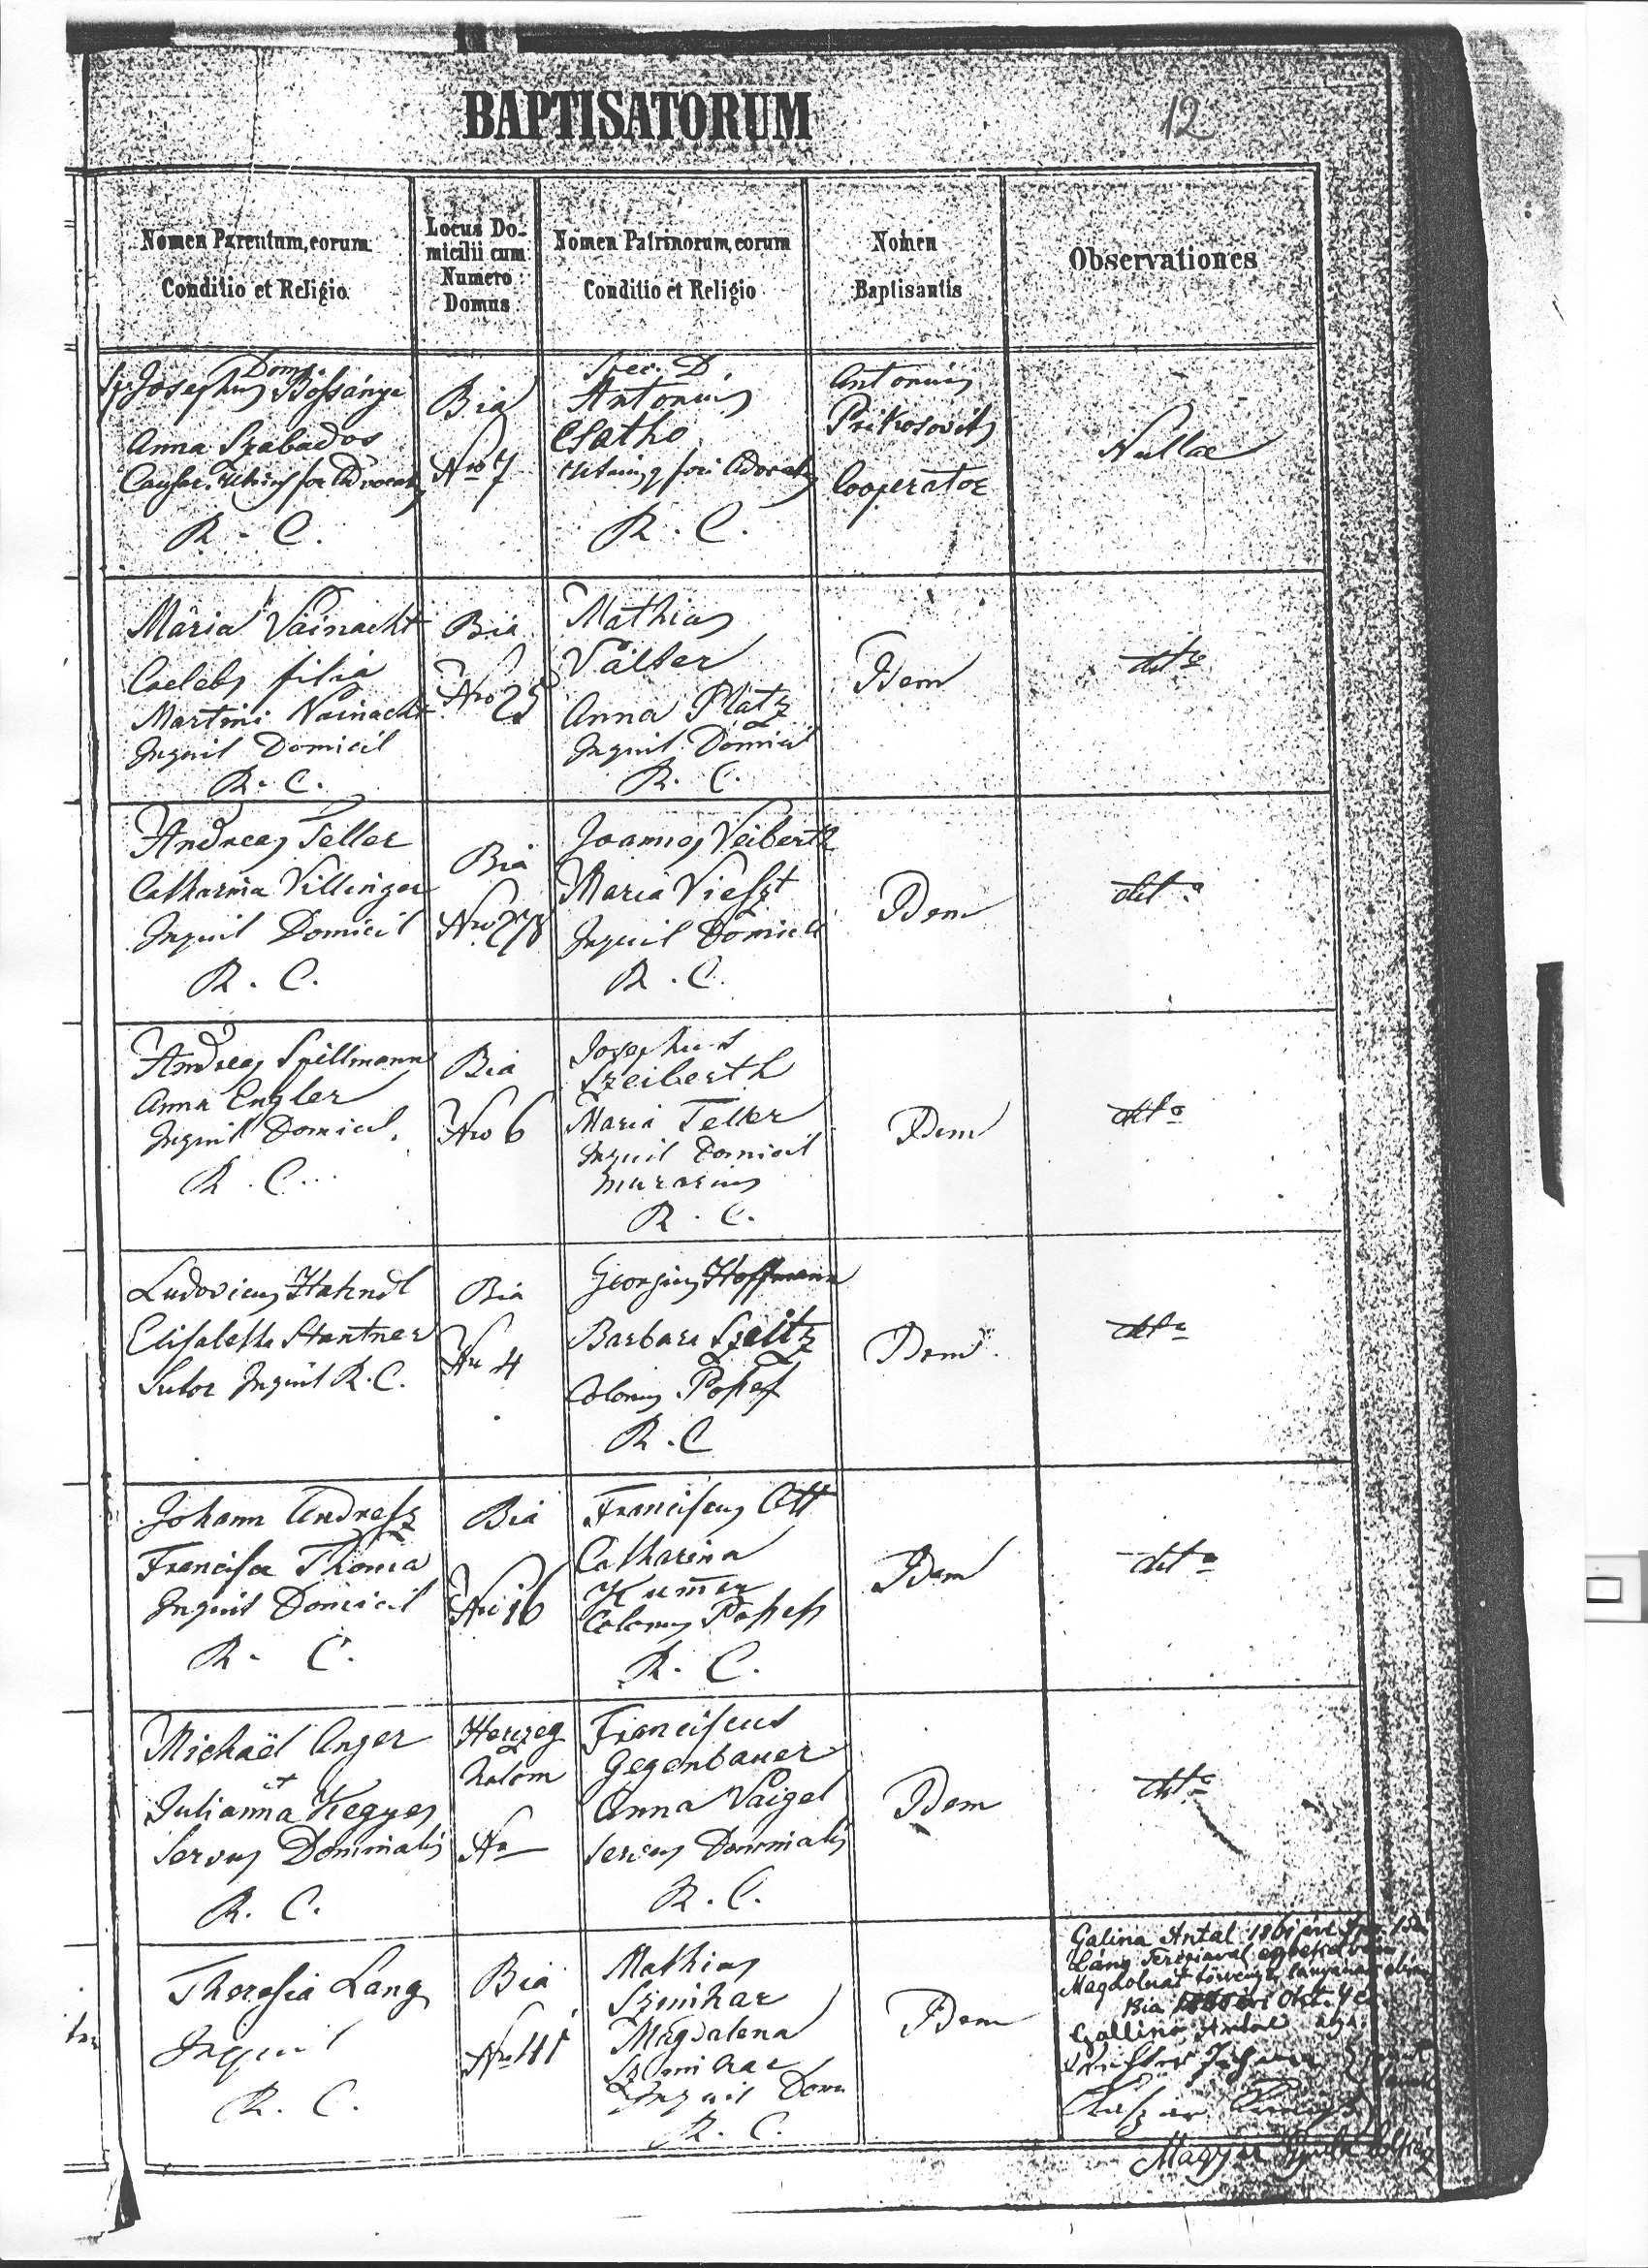 BAPTISATORUM
12
Nomen Parentum, eorum
Conditio et Religio
Locus Do-
micilii cum
Numero
Domus
Nomen Patrinorum, eorum
Conditio et Religio
Nomen
Baptisantis
Observationes
Dom.
Josephus Bossányi
Anna Szabados
R. C.
Bia
Nro 7
Spec. D.
Antonius
Csatho
R. C.
Antonius
Prikosovits
Cooperator
Nullae
Maria Vainacht
Caelebs filia
Martini Vainacht
Inquil Domicil
R. C.
Bia
Nro 25
Mathias
Välter
Anna Platz
Inquil Domicil
R. C.
Idem
detto
Andreas Teller
Catharina Villinger
Inquil Domicil
R. C.
Bia
Nro 278
Joannes Veiberth
Maria Vieszt
Inquil Domicil
R. C.
Idem
detto
Andreas Spillmann
Anna Engler
Inquil Domicil.
R. C.
Bia
Nro 6
Josephus
Szeiberth
Maria Teller
Inquil Domicil
murarius
R. C.
Idem
detto
Ludovicus Hahndl
Elisabetha Stantner
Sutor Inquil R. C.
Bia
Nr 4
Georgius Hoffmann
Barbara Szeitz
Colonus Possess
R. C
Idem
detto
Johann Andresz
Francisca Thoma
Inquil Domicil
R. C.
Bia
Nro 16
Franciscus Ott
Catharina
Kummer
Colonus Possess
R. C.
Idem
detto
Michaël Anger
et
Julianna Kegyes
Servus Dominalis
R. C.
Herczeg
halom
Nr —
Franciscus
Gegenbauer
Anna Vaigel
servus Dominalis
R. C.
Idem
detto
Theresia Lang
Inquil
R. C.
Bia
Nro 41
Mathias
Szminkar
Magdalena
Szminkar
Inquil Dom
R. C.
Idem
Galina Antal 1861
Láng Terziával egybekelvén
Magdolnát törvényes lányának
Bia Okt.
Gallina Antal
Johann
Magyar